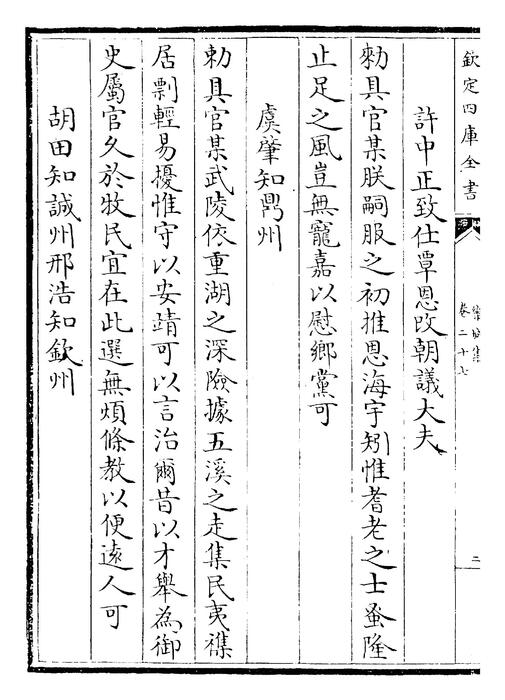 欽定四庫全書
卷二十七
二
許中正致仕覃恩改朝議大夫
勑具官某朕嗣服之初推恩海宇矧惟耆老之士蚤隆
止足之風豈無寵嘉以慰鄉黨可
虞肇知鼎州
勑具官某武陵依重湖之深險據五溪之走集民夷襍
居剽輕易擾惟守以安靖可以言治爾昔以才舉為御
史屬官久於牧民宜在此選無煩條教以便遠人可
胡田知誠州邢浩知欽州